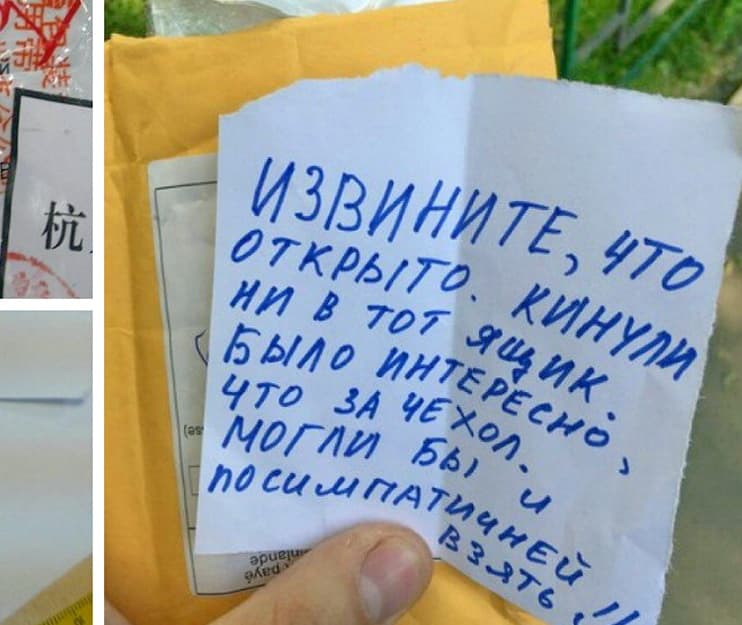 杭
ИЗВИНИТЕ, ЧТО
ОТКРЫТО. КИНУЛИ
НИ В ТОТ ЯЩИК.
БЫЛО ИНТЕРЕСНО,
ЧТО ЗА ЧЕХОЛ.
МОГЛИ БЫ И
ПОСИМПАТИЧНЕЙ
ВЗЯТЬ!!
payé